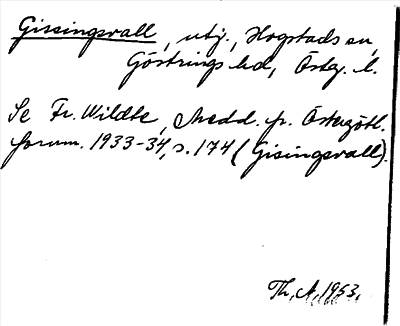 Gissingsvall, utj., Hogstads sn,
Göstrings hd, Östg. l.
Se Fr. Wildte, Medd. fr. Östergötl.
fornm. 1933-34, s. 174 (Gisingsvall).
Th. A. 1953.